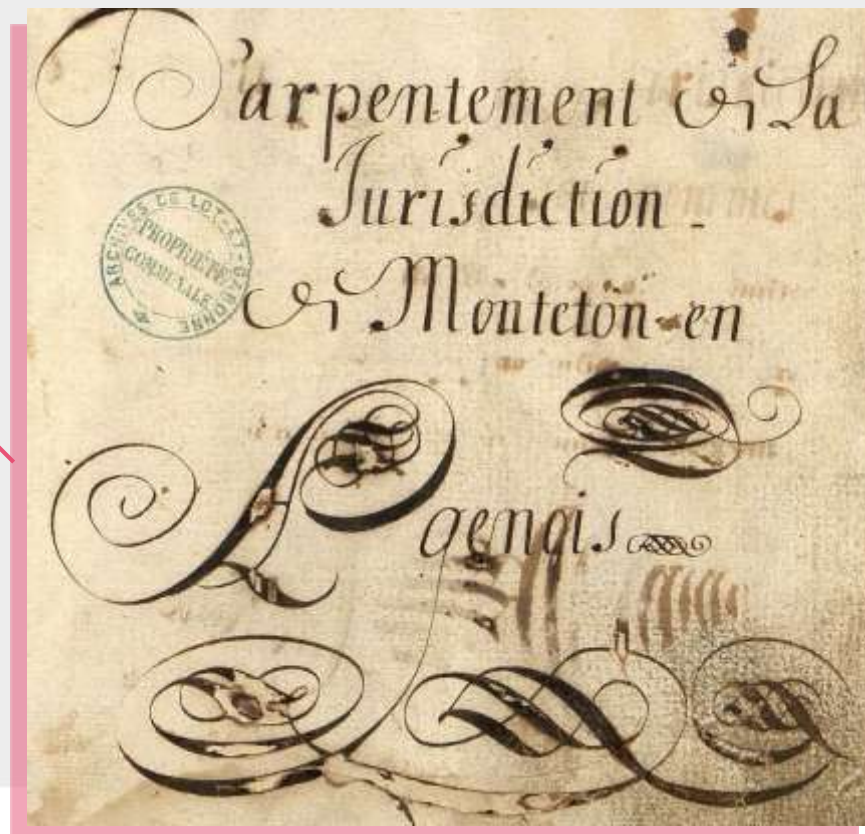 D'arpentement de La
Jurisdiction
de Monteton en
Agenois
ARCHIVES DE LOT-ET-GARONNE
PROPRIÉTÉ
COMMUNALE